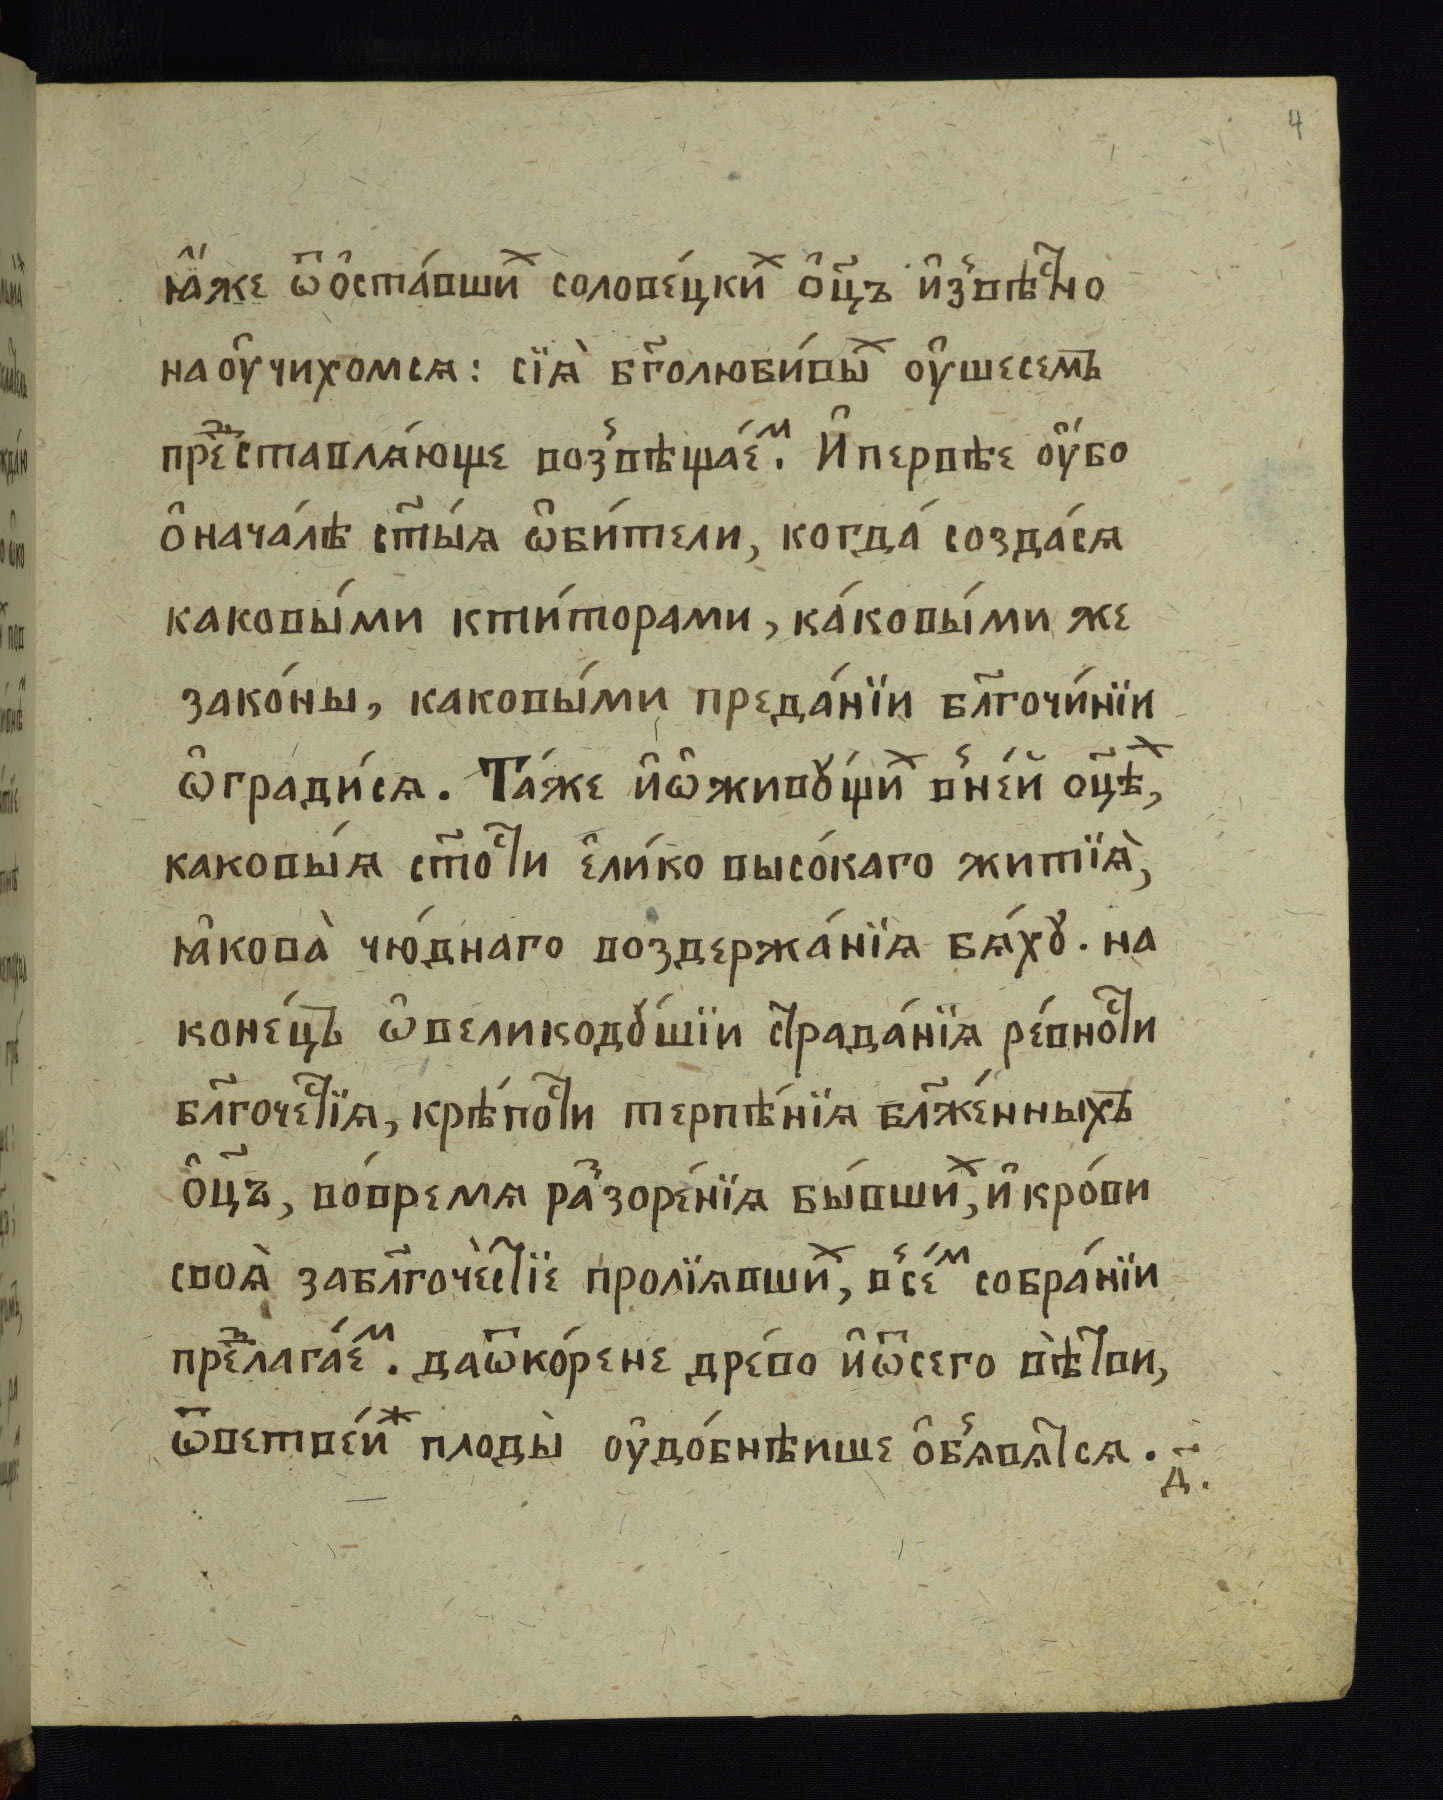 4
ꙗ҆́же ѿѻ҆ста́вшиⷯ солове́цкиⷯ ѻ҆ц҃ъ и҆звѣⷭ҇но
наоу҆чихомсѧ: сїѧ̀ бг҃олюби́выⷯ оу҆шесемъ
преⷣставлѧ́юще возвѣщае́ⷨ. И҆первѣе оу҆́бо
ѻ҆нача́лѣ ст҃ы́ѧ ѡ҆би́тели, когда́ созда́сѧ
каковы́ми кти́торами, ка́ковы́ми же
зако́ны, каковы́ми преда́нїи бл҃гочи́нїи
ѡ҆гради́сѧ. Та́же и҆ѡ҆живꙋ́щиⷯ вне́й ѻц҃ѣⷯ,
каковы́ѧ ст҃оⷭ҇ти є҆ли́ко высо́каго житїѧ̀,
ꙗ҆кова̀ чю́днаго воздержа́нїѧ бѧ́хꙋ. на
коне́цъ ѡ҆великодꙋ́шїи страда́нїѧ ре́вноⷭ҇ти
бл҃гочеⷭ҇тїѧ, крѣ́поⷭ҇ти терпѣ́нїѧ бл҃же́нныхъ
ѻ҆ц҃ъ, во́времѧ раⷥзоре́нїѧ бы́вшиⷯ, и҆кро́ви
своѧ̀ забл҃гоче́стїе пролїѧвшиⷯ, всеⷨ собра́нїи
преⷣлага́еⷨ. даѿко́рене дре́во и҆ѿсего вѣ̀тви,
ѿветве́йⷤ плоды̀ оу҆до́бнѣише ѻ҆б̾ѧвѧ́тсѧ.
д҃.